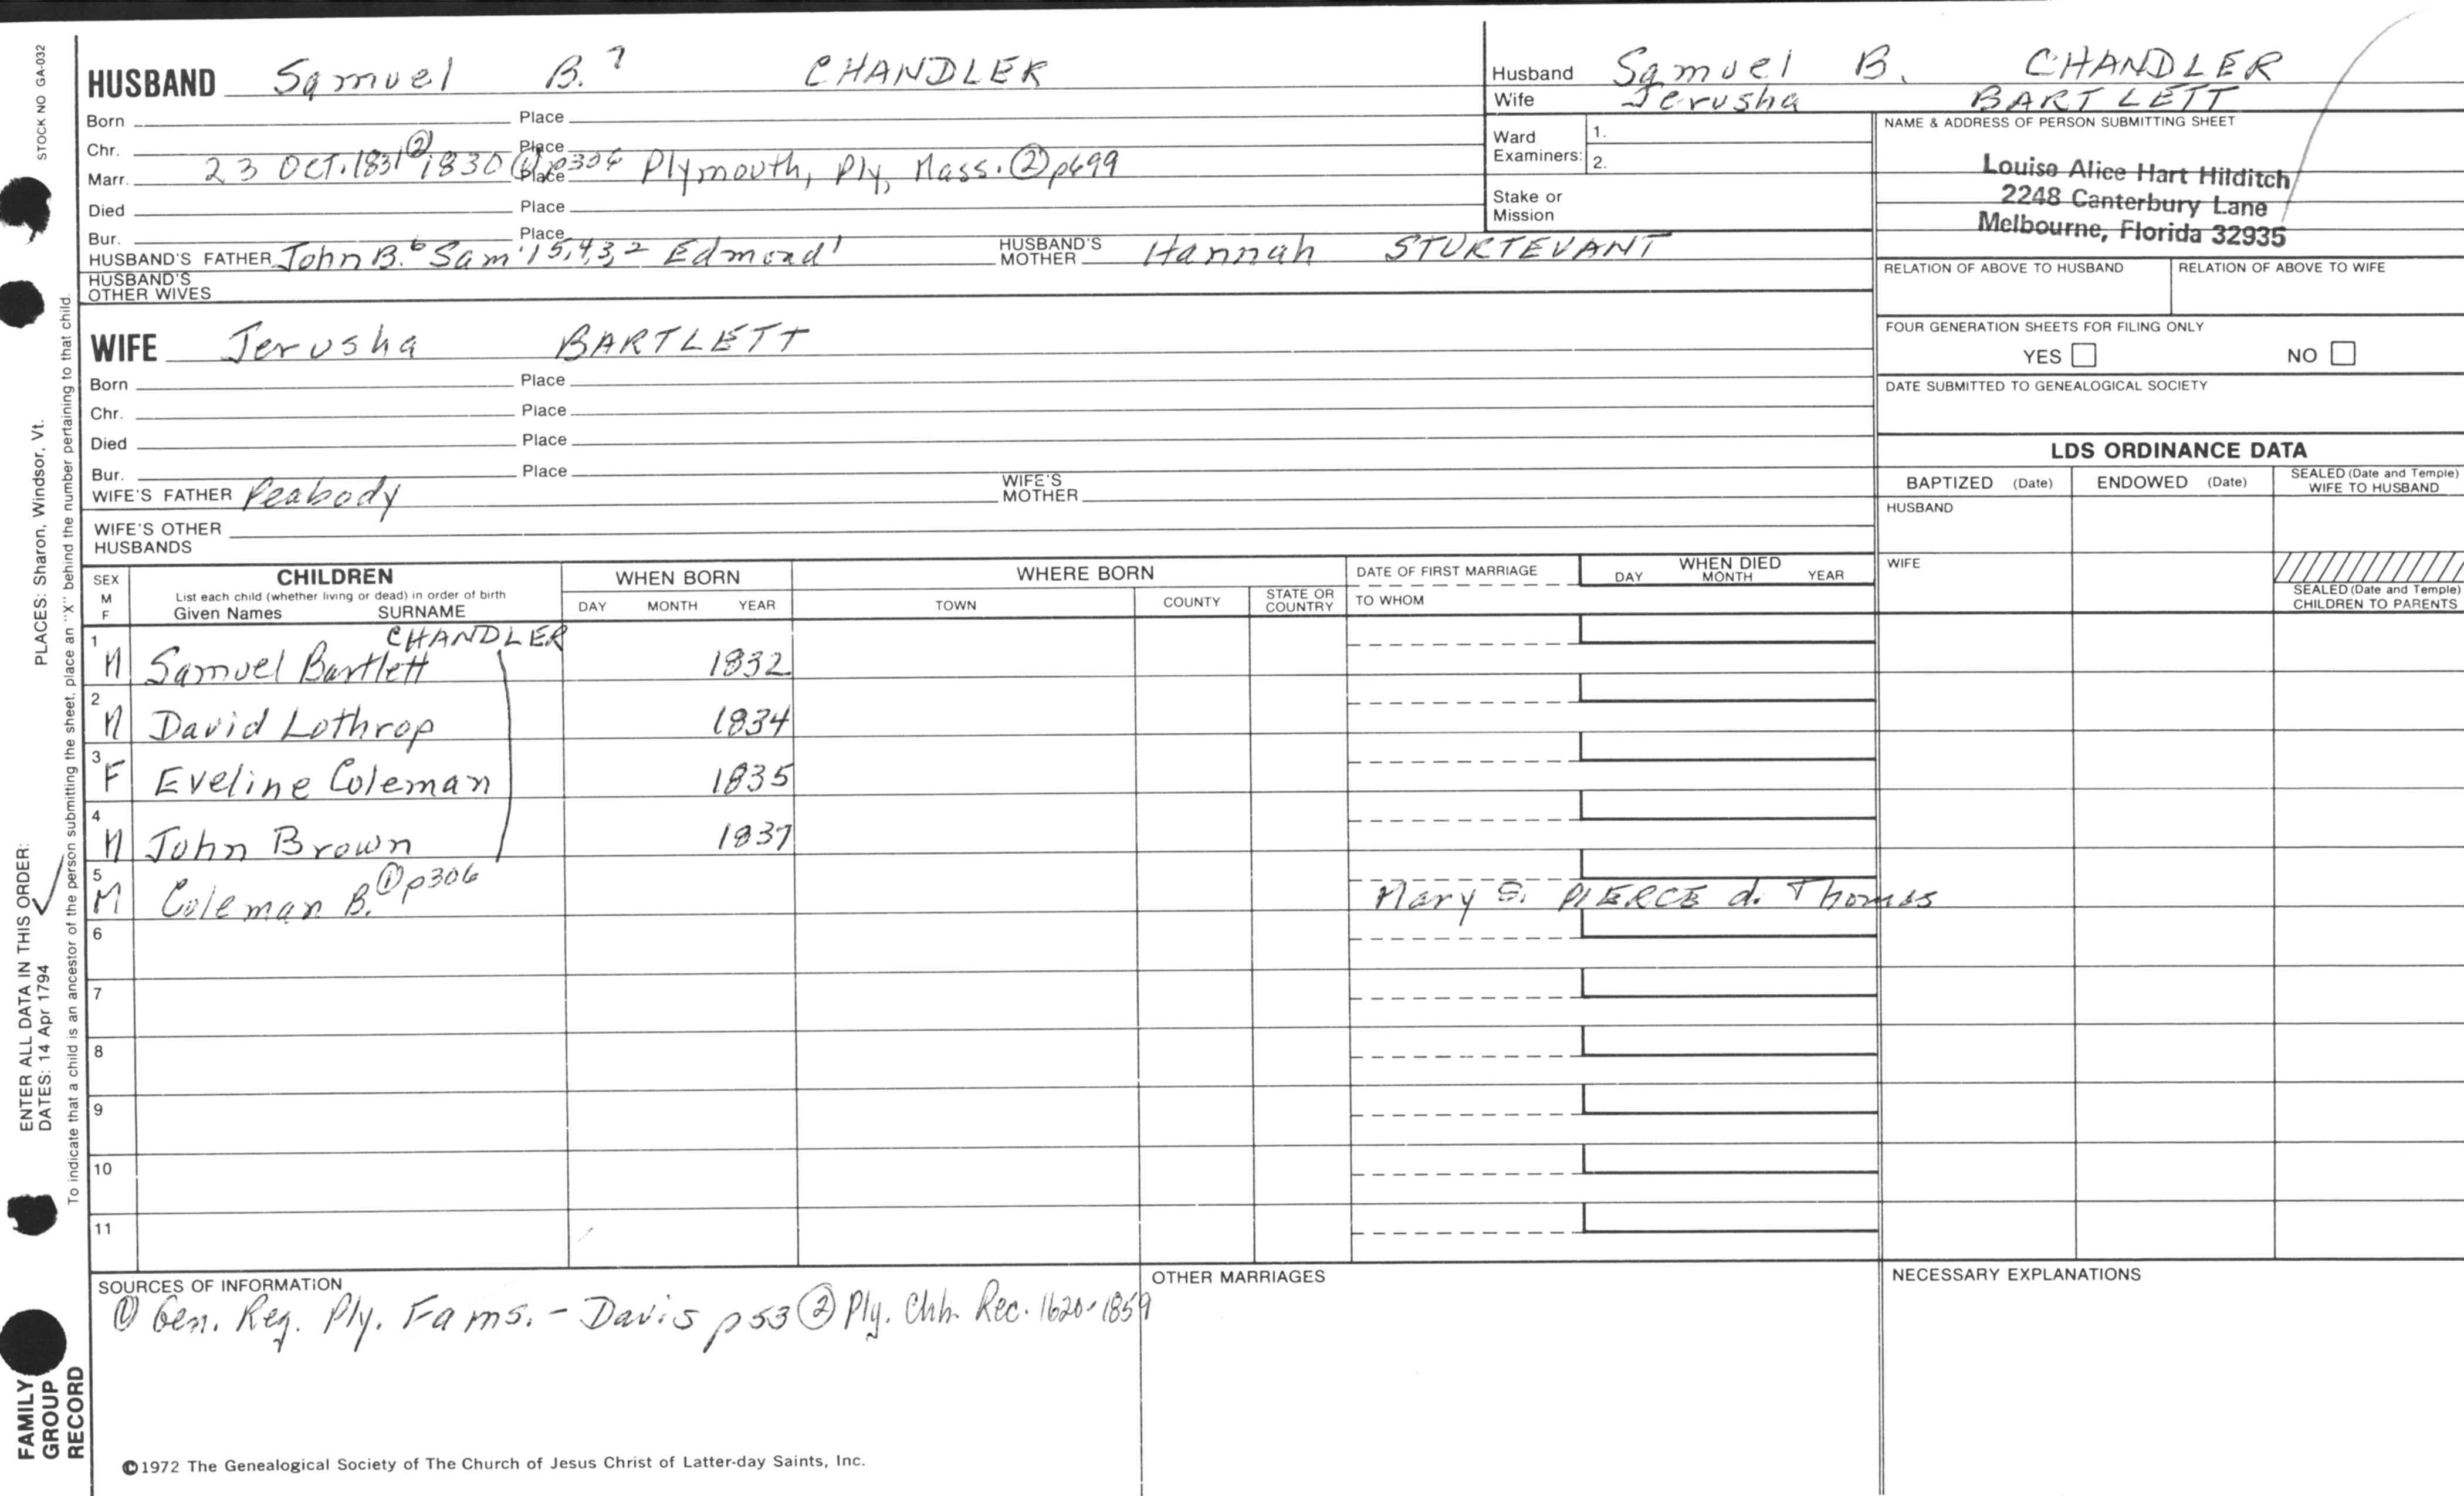 STOCK NO GA-032
HUSBAND Samuel B.7 CHANDLER
Born Place
Chr. Place
Marr. 23 Oct. 1831 ② 1830 ① p306 Place Plymouth, Ply, Mass. ② p699
Died Place
Bur. Place
HUSBAND'S FATHER John B.6 Sam'l 5,4,3,2 Edmond 1 HUSBAND'S MOTHER Hannah STURTEVANT
HUSBAND'S OTHER WIVES
WIFE Jerusha BARTLETT
Born Place
Chr. Place
Died Place
Bur. Place
WIFE'S FATHER Peabody WIFE'S MOTHER
WIFE'S OTHER HUSBANDS
Husband Samuel B. CHANDLER
Wife Jerusha BARTLETT
Ward Examiners: 1.
2.
Stake or Mission
NAME & ADDRESS OF PERSON SUBMITTING SHEET
Louise Alice Hart Hilditch
2248 Canterbury Lane
Melbourne, Florida 32935
RELATION OF ABOVE TO HUSBAND RELATION OF ABOVE TO WIFE
FOUR GENERATION SHEETS FOR FILING ONLY
YES NO
DATE SUBMITTED TO GENEALOGICAL SOCIETY
LDS ORDINANCE DATA
BAPTIZED (Date) ENDOWED (Date) SEALED (Date and Temple) WIFE TO HUSBAND
HUSBAND
WIFE
SEALED (Date and Temple) CHILDREN TO PARENTS
SEX M F CHILDREN WHEN BORN WHERE BORN DATE OF FIRST MARRIAGE WHEN DIED
List each child (whether living or dead) in order of birth
Given Names SURNAME DAY MONTH YEAR TOWN COUNTY STATE OR COUNTRY TO WHOM DAY MONTH YEAR
CHANDLER
1 M Samuel Bartlett 1832
2 M David Lothrop 1834
3 F Eveline Coleman 1835
4 M John Brown 1837
5 M Coleman B. ① p306 Mary S. PIERCE d. Thomas
6
7
8
9
10
11
SOURCES OF INFORMATION
① Gen. Reg. Ply. Fams. - Davis p53 ② Ply. Chh. Rec. 1620-1859
OTHER MARRIAGES
NECESSARY EXPLANATIONS
©1972 The Genealogical Society of The Church of Jesus Christ of Latter-day Saints, Inc.
FAMILY GROUP RECORD
ENTER ALL DATA IN THIS ORDER:
DATES: 14 Apr 1794
PLACES: Sharon, Windsor, Vt.
To indicate that a child is an ancestor of the person submitting the sheet, place an "X" behind the number pertaining to that child.